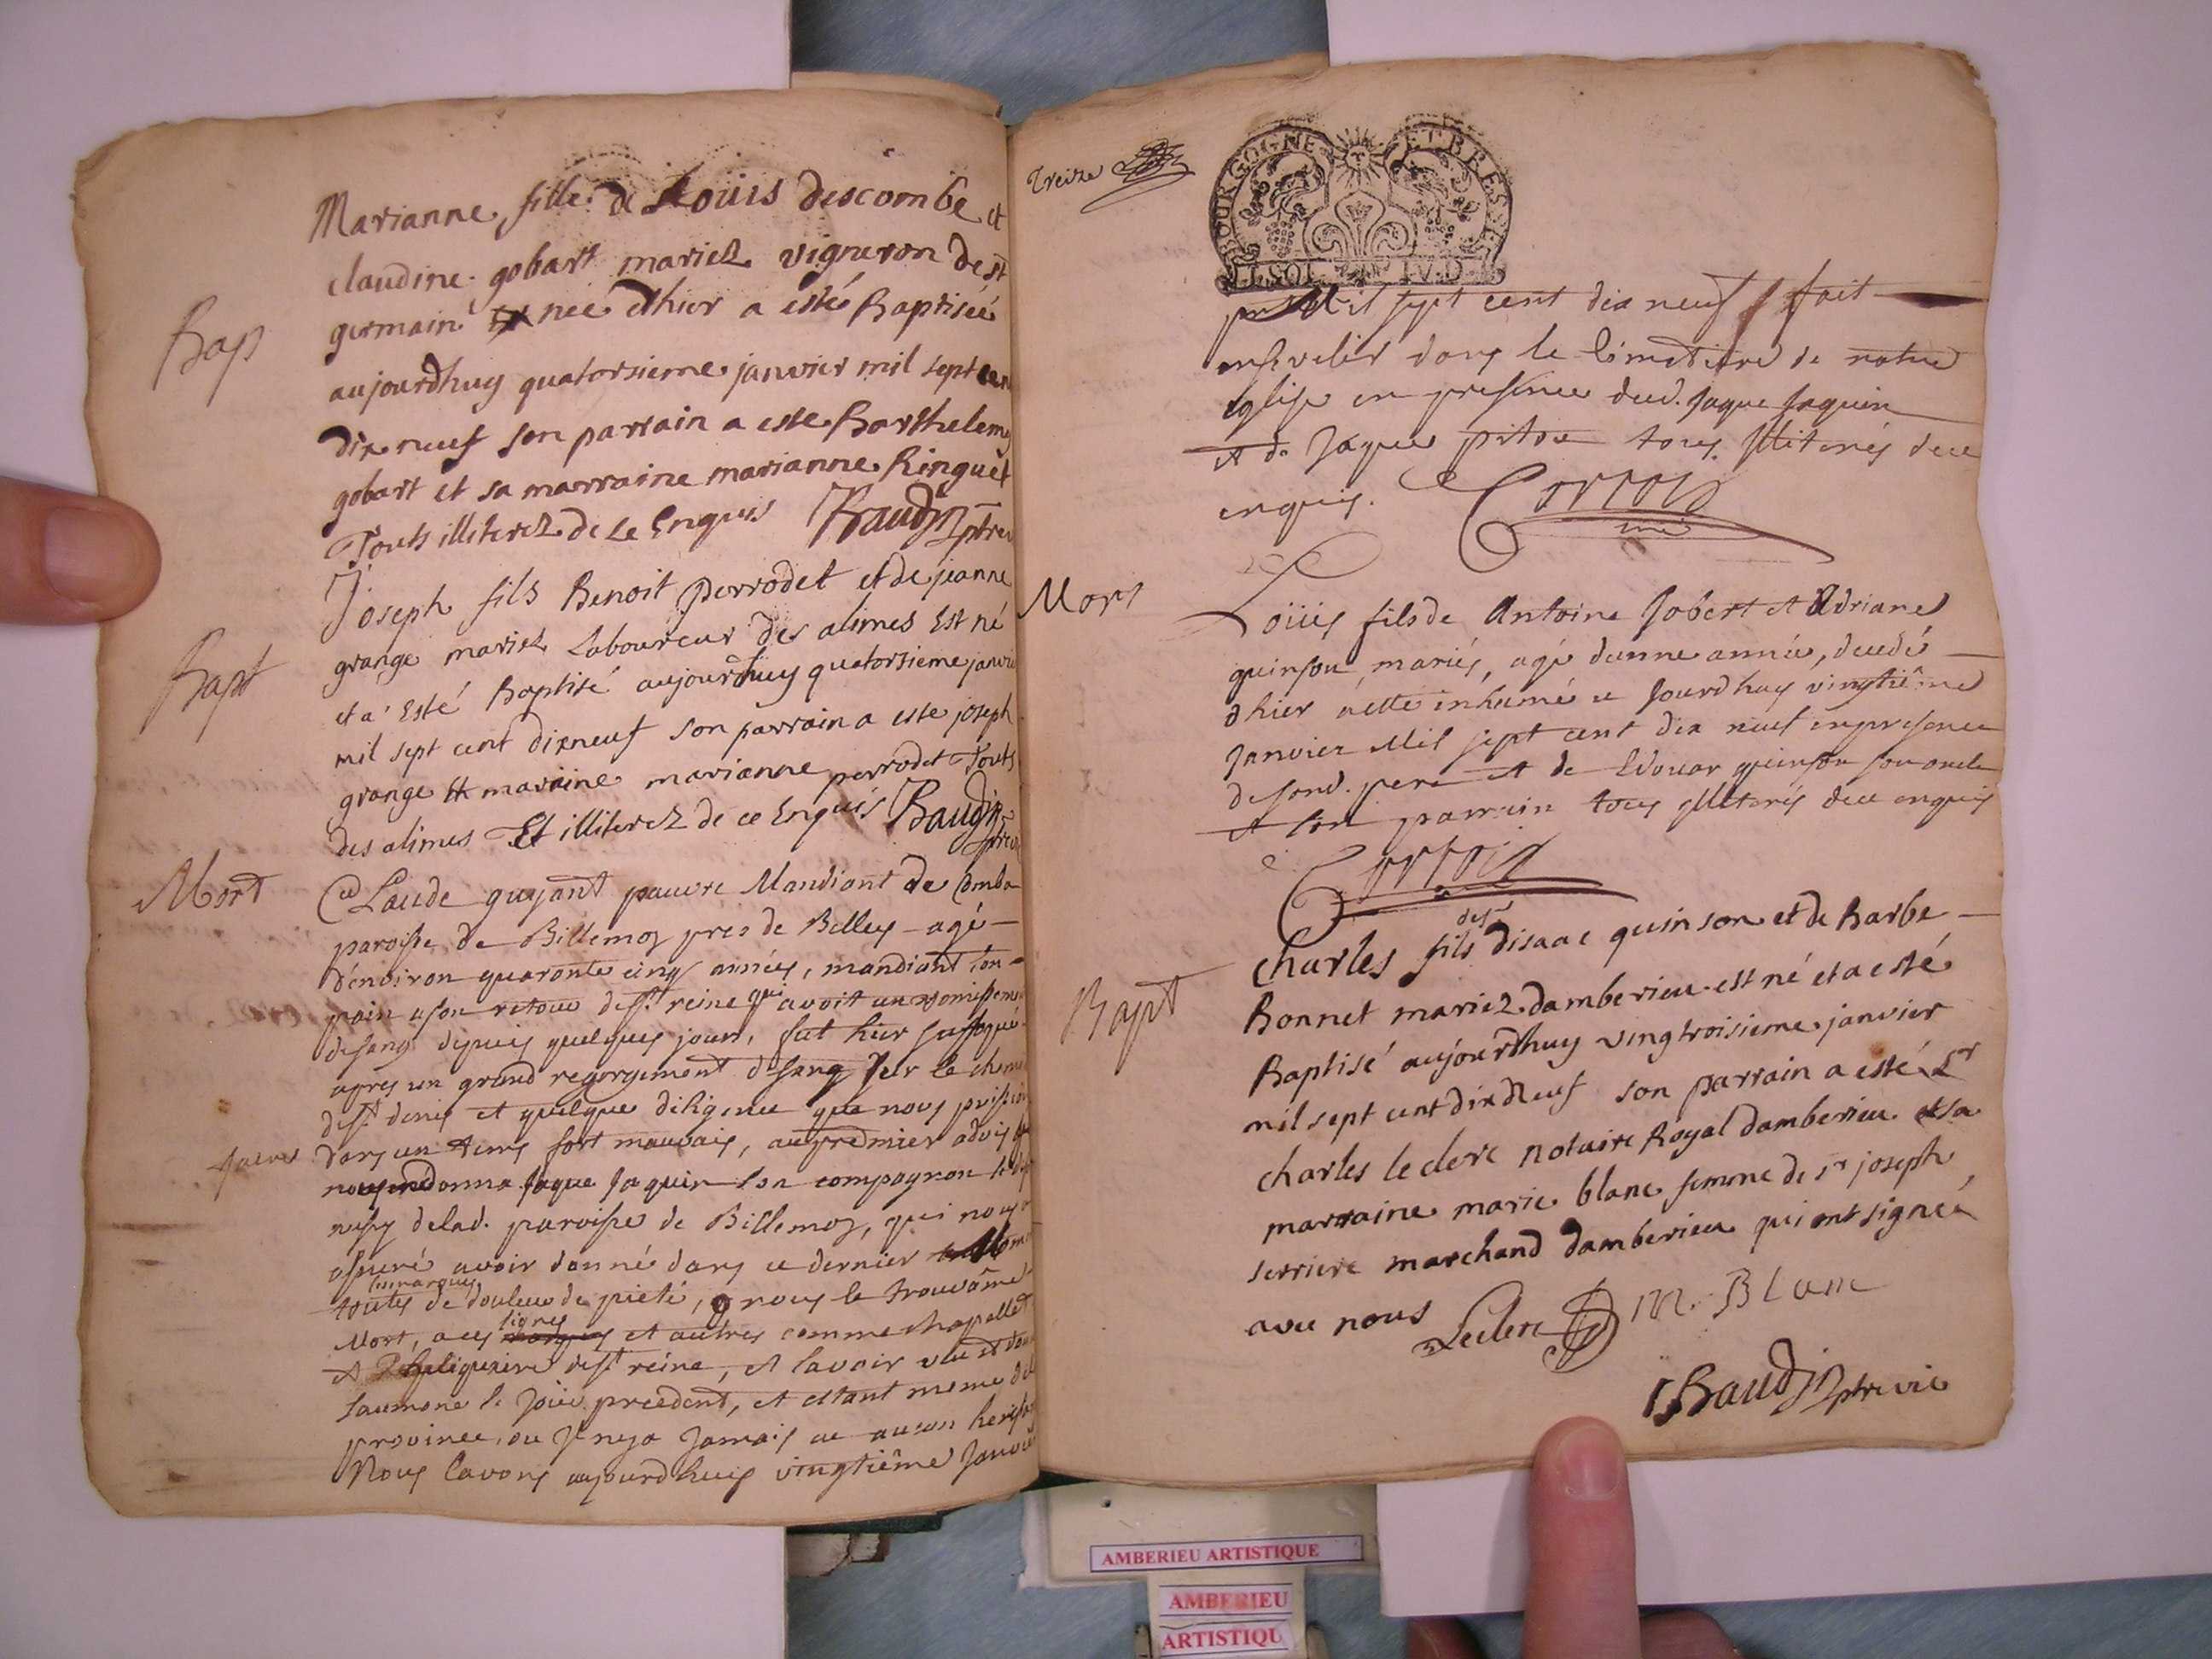 Bap
Marianne fille de Louis descombe et
claudine gobart mariez vigneron de st
germain née dhier a esté Baptisée
aujourdhuy quatorsieme janvier mil sept cen
dix neuf son parrain a este Barthelemy
gobart et sa marraine marianne Ringuet
Touts illiterez de ce Enquis Baudin ptre
Bapt
Joseph fils Benoit perrodet et de jeanne
grange mariez Laboureur des alimes Est né
et a Esté Baptisé aujourdhuy quatorsieme janvi
mil sept cent dixneuf son parrain a este joseph
grange Et maraine marianne perrodet Touts
des alimes Et illiterez de ce Enquis Baudin
Mort
Claude guyant pauvre Mandiant de
paroisse de Billemoz pres de Belley agé
d'environ quarante cinq années, mandiant son
pain a son retour de ste reine qui avoit un vomissem
de sang depuis quelques jours, fut hier suffoqué
apres un grand regorgement de sang sur le chem
de st denis et quelque diligence que nous
dans un tems fort mauvais, au premier advis que
nous en donna Jaque Jaquin son compagnon
delad. paroisse de Billemoz, qui nous
assuré avoir donné dans ce dernier
toutes les marques de douleur de pieté, nous le trouvâme
Mort, a ces signes et autres comme chapellet
et Reliquaire de ste reine, et lavoir vu et
laumone le Jour precedent, et estant meme de
province, ou Il ny a Jamais eu aucun
Nous lavons aujourdhuis vingtiême Janvi
treize
BOURGOGNE ET BRESSE
I.SOL. IV.D.
Mil sept cent dix neuf fait
ensevelir dans le Cimetiere de notre
Eglise en presence dud. Jaque Jaquin
et de Jaques pitou tous Illiterés de ce
enquis. Cortois
curé
Mort
Loüis fils de Antoine Jobert et Adriane
quinson mariés, agé dunne année, decedé
dhier a etté inhumé ce Jourdhuy vingtiême
Janvier Mil sept cent dix neuf en presence
de sond. pere et de Edouar quinson son oncle
et son parrain tous Illiterés de ce enquis
Cortois
Bapt
Charles fils disaac quinson et de Barbe
Bonnet mariez damberieu est né et a esté
Baptisé aujourdhuy vingtroisieme janvier
mil sept cent dix neuf son parrain a esté Sr
charles leclerc notaire Royal damberieu et sa
marraine marie blanc femme de sr joseph
serriere marchand damberieu qui ont signée
avec nous Leclerc M. Blanc
Baudin ptre vic
AMBERIEU ARTISTIQUE
AMBERIEU
ARTISTIQU